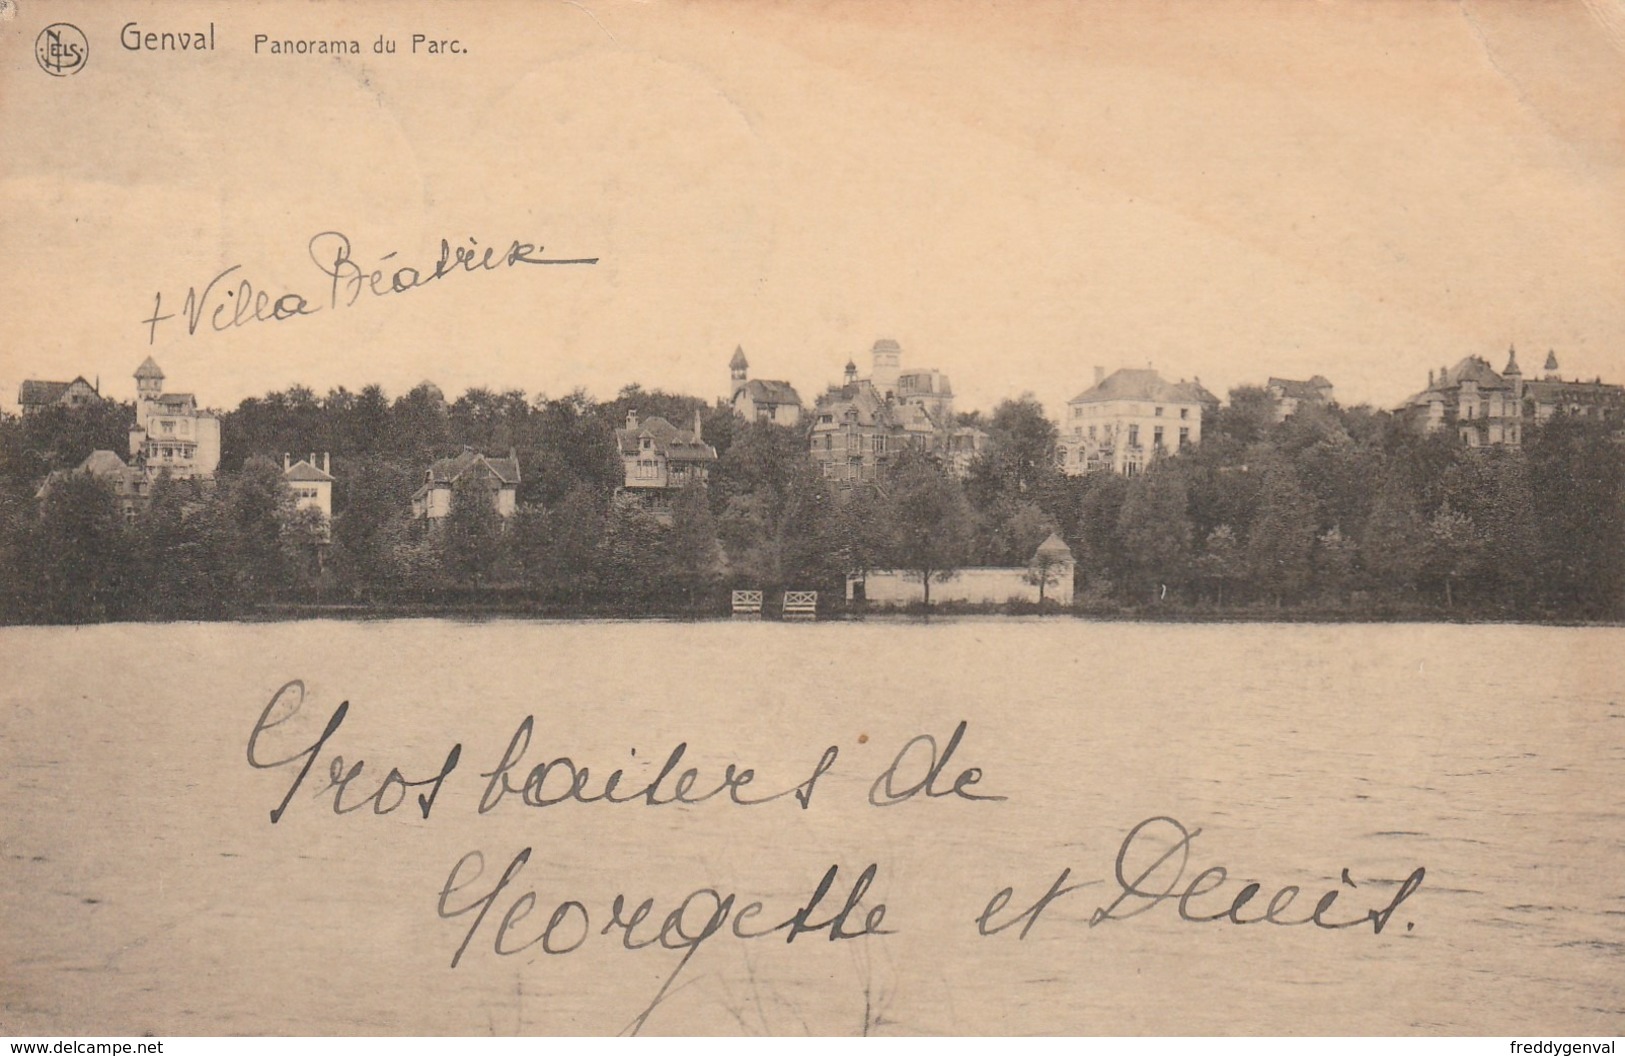 NELS
Genval Panorama du Parc.
+ Villa Béatrix.
Gros baisers de
Georgette et Denis.
www.delcampe.net
freddygenval